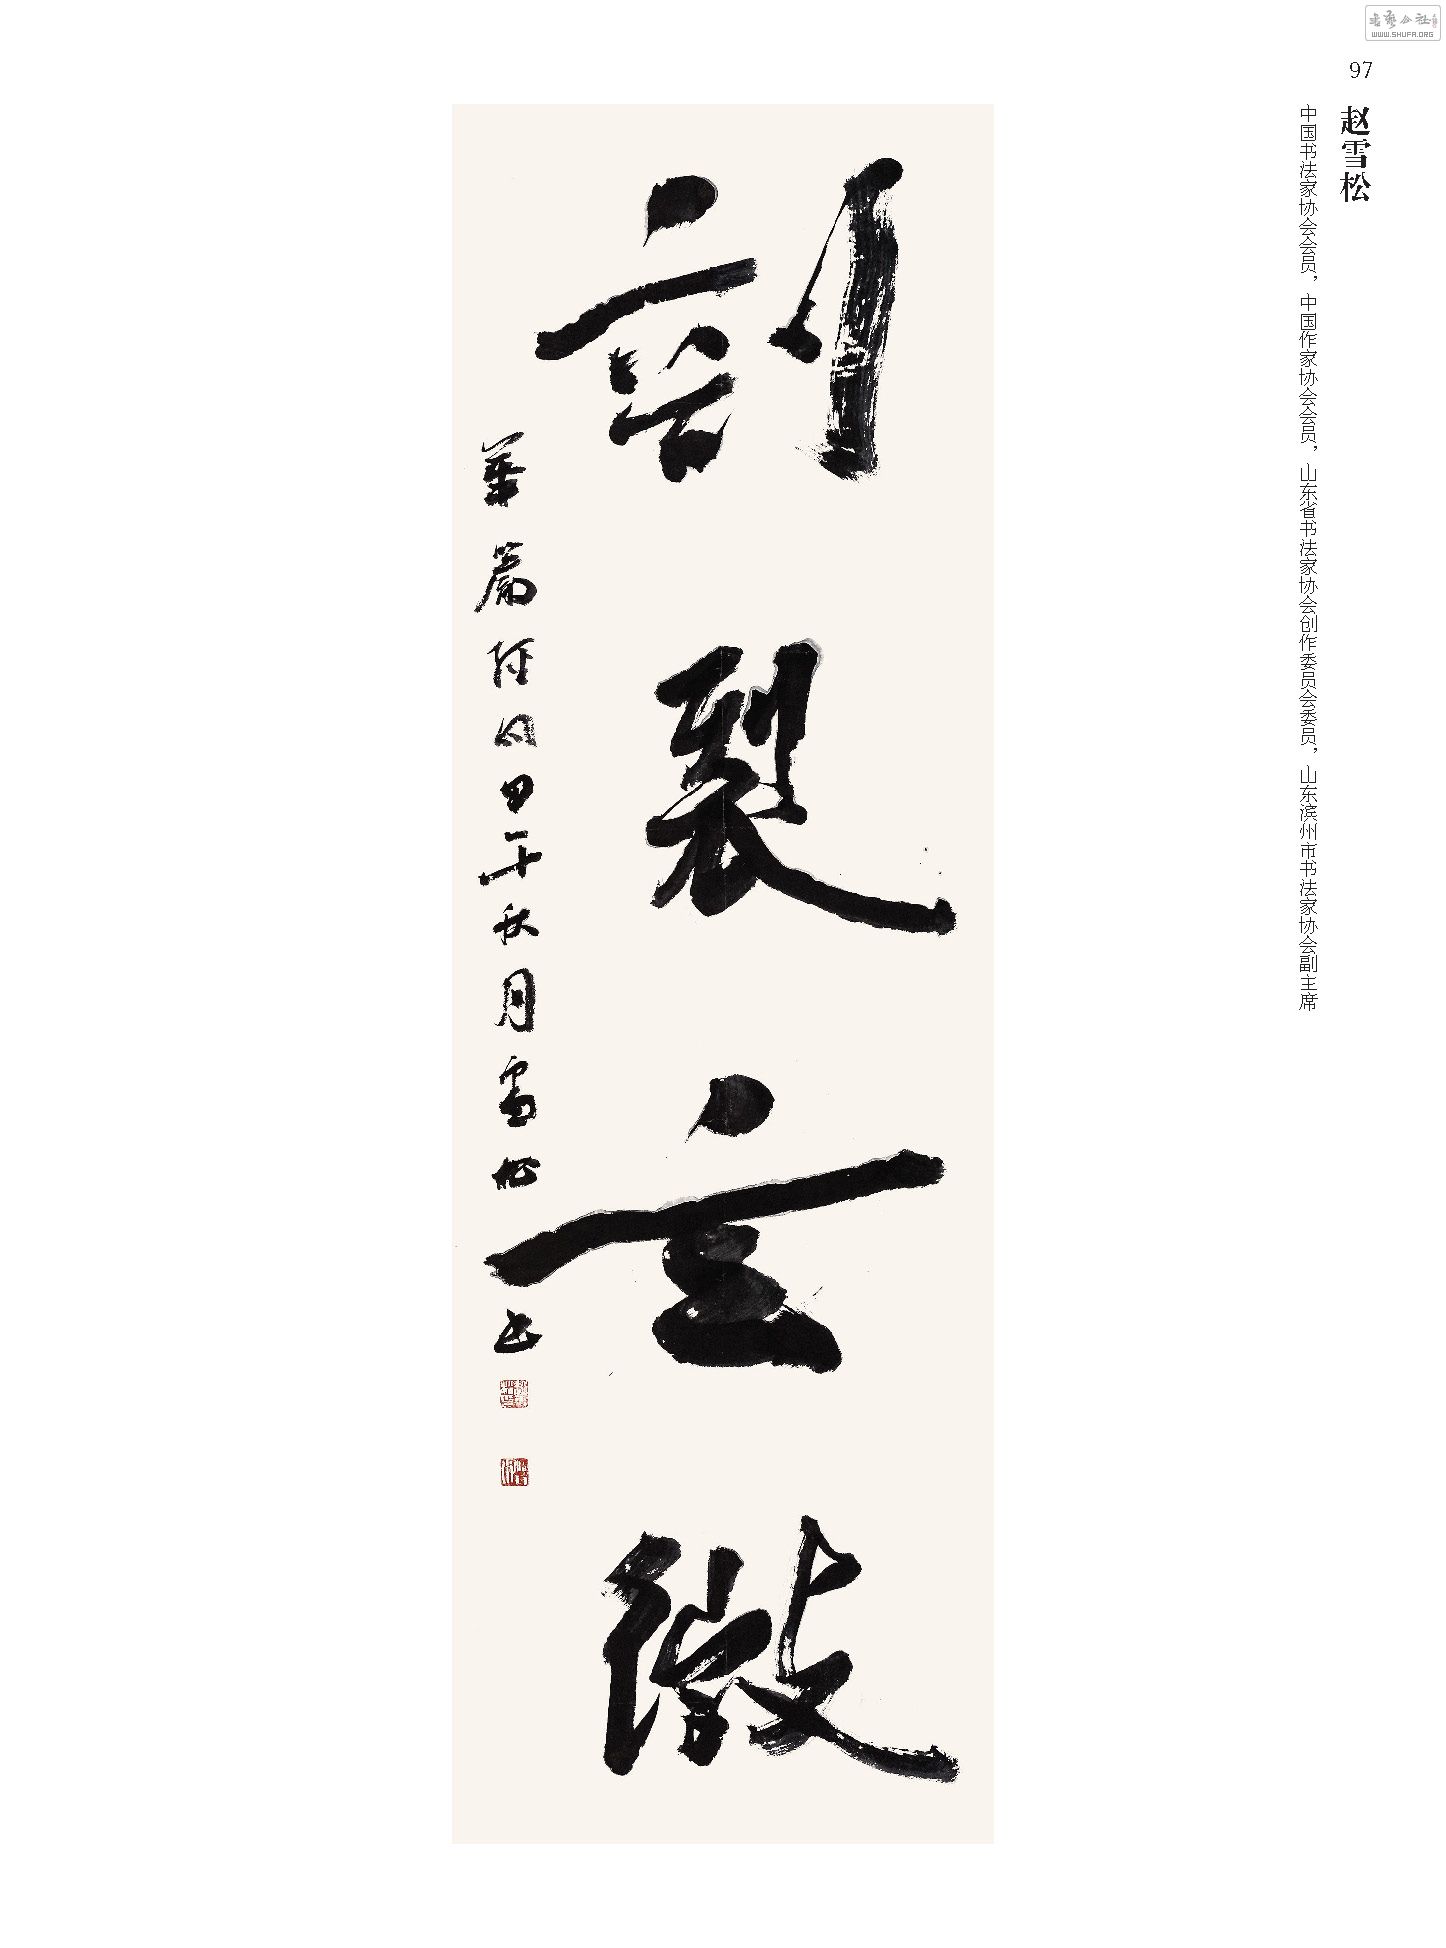 书艺公社
WWW.SHUFA.ORG
97
赵雪松
中国书法家协会会员，中国作家协会会员，山东省书法家协会创作委员会委员，山东滨州市书法家协会副主席
剖裂玄微
甲午秋月雪松书